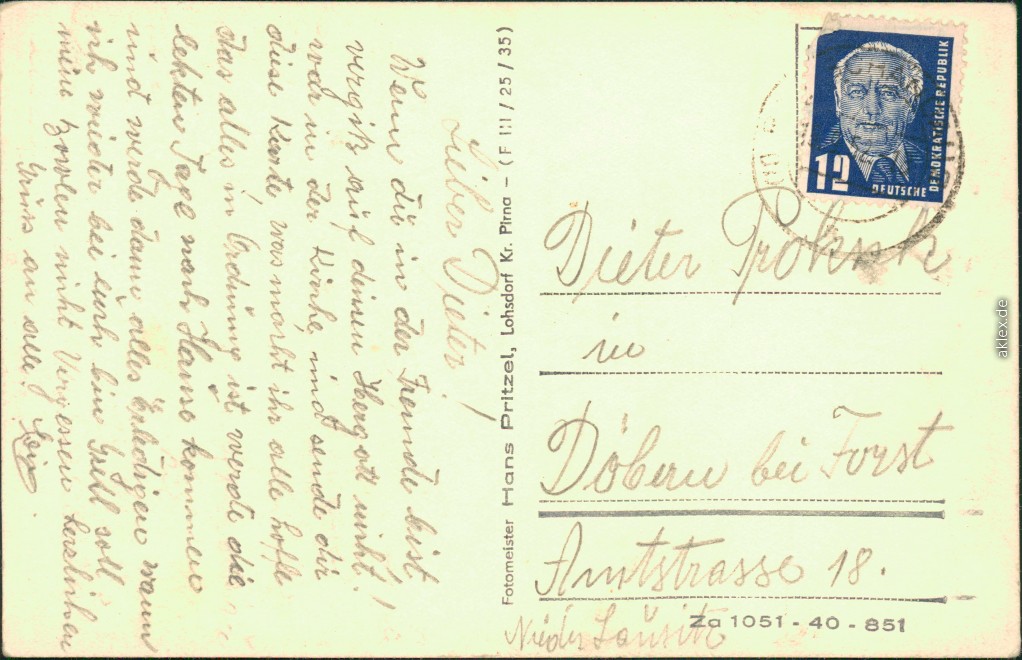 Lieber Dieter!
Wenn du in der Fremde bist
vergiß auf deinen Hergott nicht!
war in der Kirche, und sende dir
diese Karte, was macht ihr alle hoffe
das alles in Ordnung ist werde die
letzten Tage nach Hause kommen
und werde dann alles erledigen wann
ich wieder bei euch bin Grett soll
mein nicht Vergessen
Grüss an alle!
Fotomeister Hans Pritzel, Lohsdorf Kr. Pirna - (F III / 25 / 35)
12
DEUTSCHE
DEMOKRATISCHE REPUBLIK
Dieter
in
Döbern bei Forst
Amtstrasse 18.
Nieder Lausitz
Za 1051 - 40 - 851
aklex.de